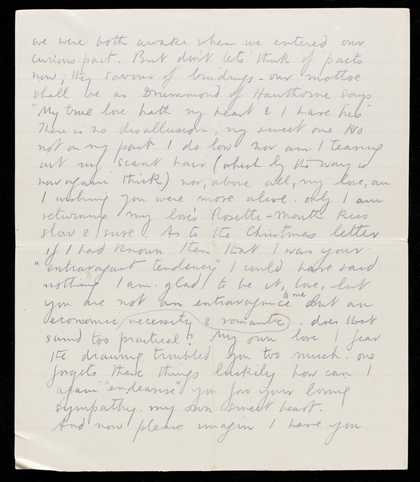 we were both awake when we entered our
curious pact. But don't lets think of pacts
now, they savour of bindings - our mottoe
shall be as Drummond of Hawthorne says
"My true love hath my heart & I have his"
There is no disallusion, my sweet one tis
not on my part I do love nor am I tearing
out my scant hair (which by the way is
now again thick) nor, above all, my love, am
I wishing you were more alive. only I am
returning my love's Rosette-Mouth kiss
slow & sure. As to the Christmas letter
if I had known then that I was your
"extravagant tendency" I could have said
nothing I am glad to be it, love, but
you are not an extravagance to me but an
economic necessity & romantic. does that
sound too practical? My own love I fear
the drawing troubled you too much. one
forgets these things luckily how can I
again "endearise" you for your loving
sympathy. my own sweet heart.
And now please imagin I have you